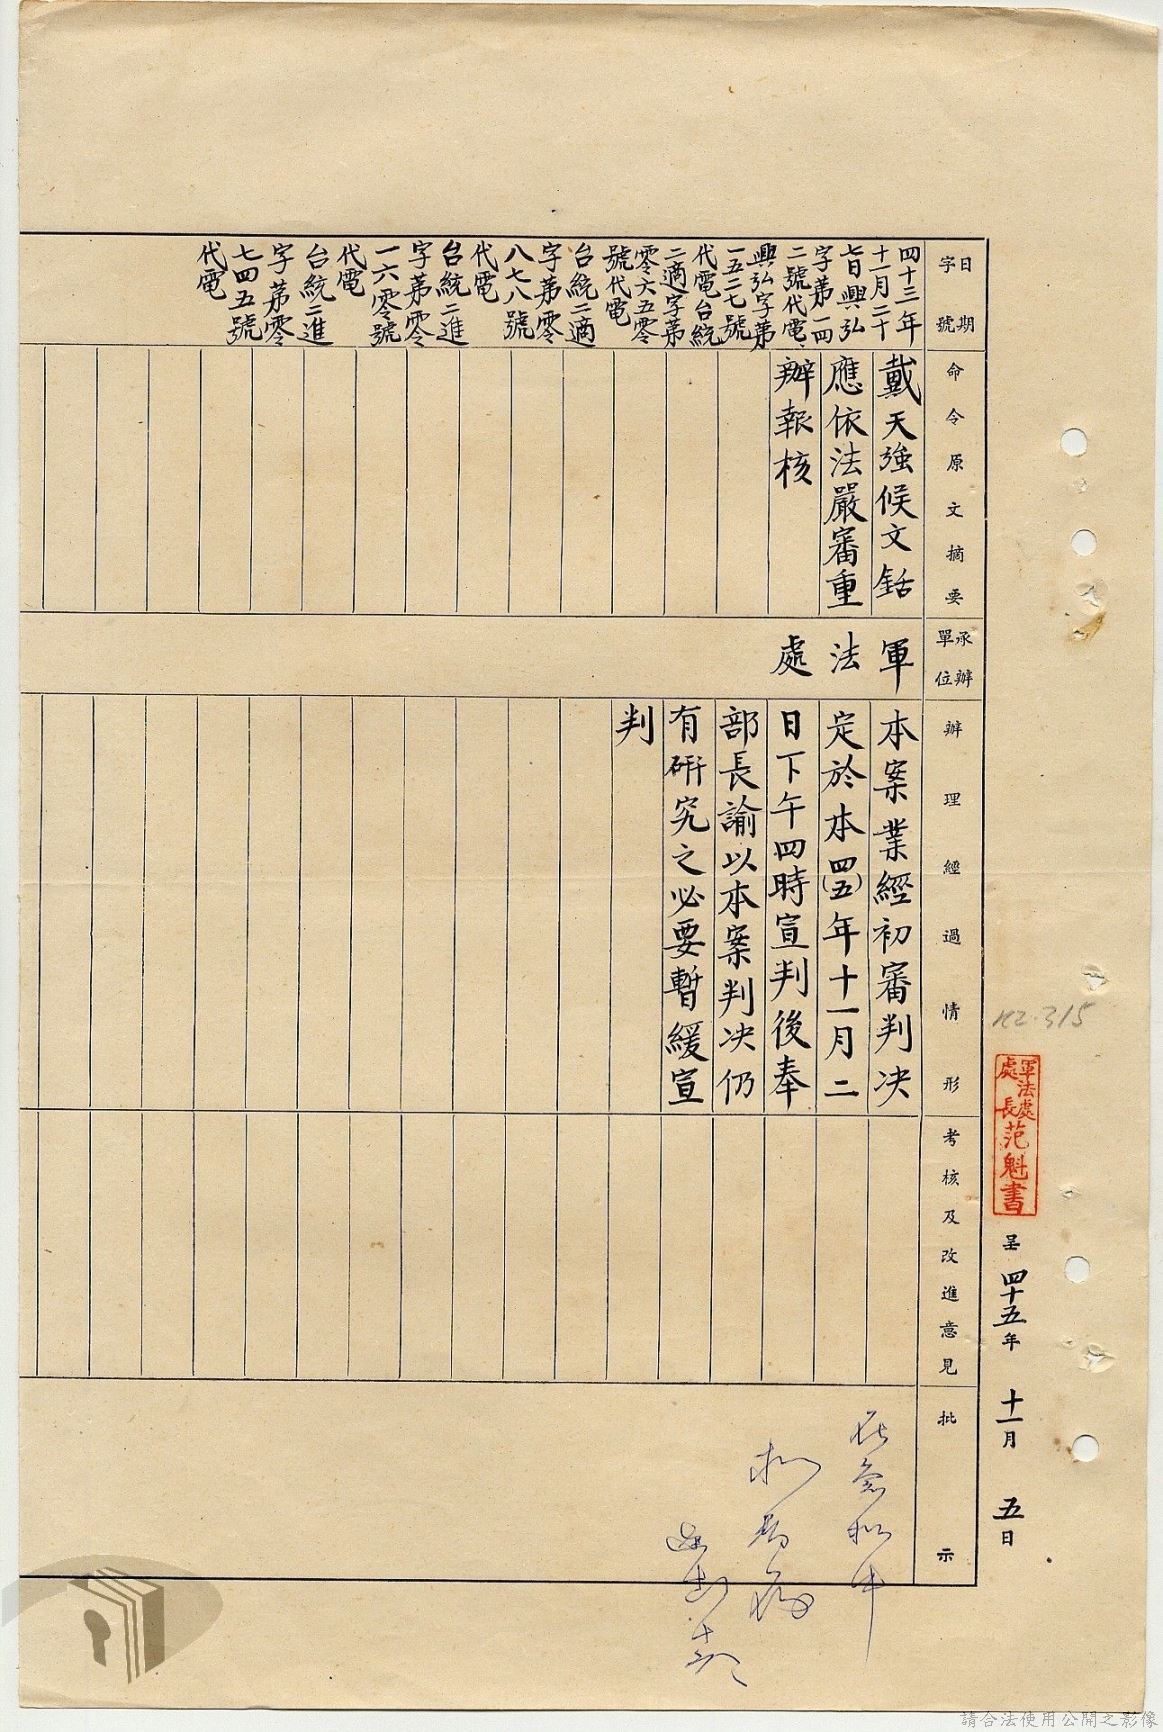 K2.315
軍法處處長范魁書 呈 四十五年 十一月 五日
日期字號
四十三年
十一月二十
七日興弘
字第一四
二號代電、
興弘字第
一五二七號
代電台統
二適字第
零六五零
號代電
台統二適
字第零
八七八號
代電
台統二進
字第零
一六零號
代電
台統二進
字第零
七四五號
代電
命令原文摘要
戴天強候文銛
應依法嚴審重
辦報核
承辦單位
軍法處
辦理經過情形
本案業經初審判決
定於本(四五)年十一月二
日下午四時宣判後奉
部長諭以本案判決仍
有研究之必要暫緩宣
判
考核及改進意見
批示
請合法使用公開之影像